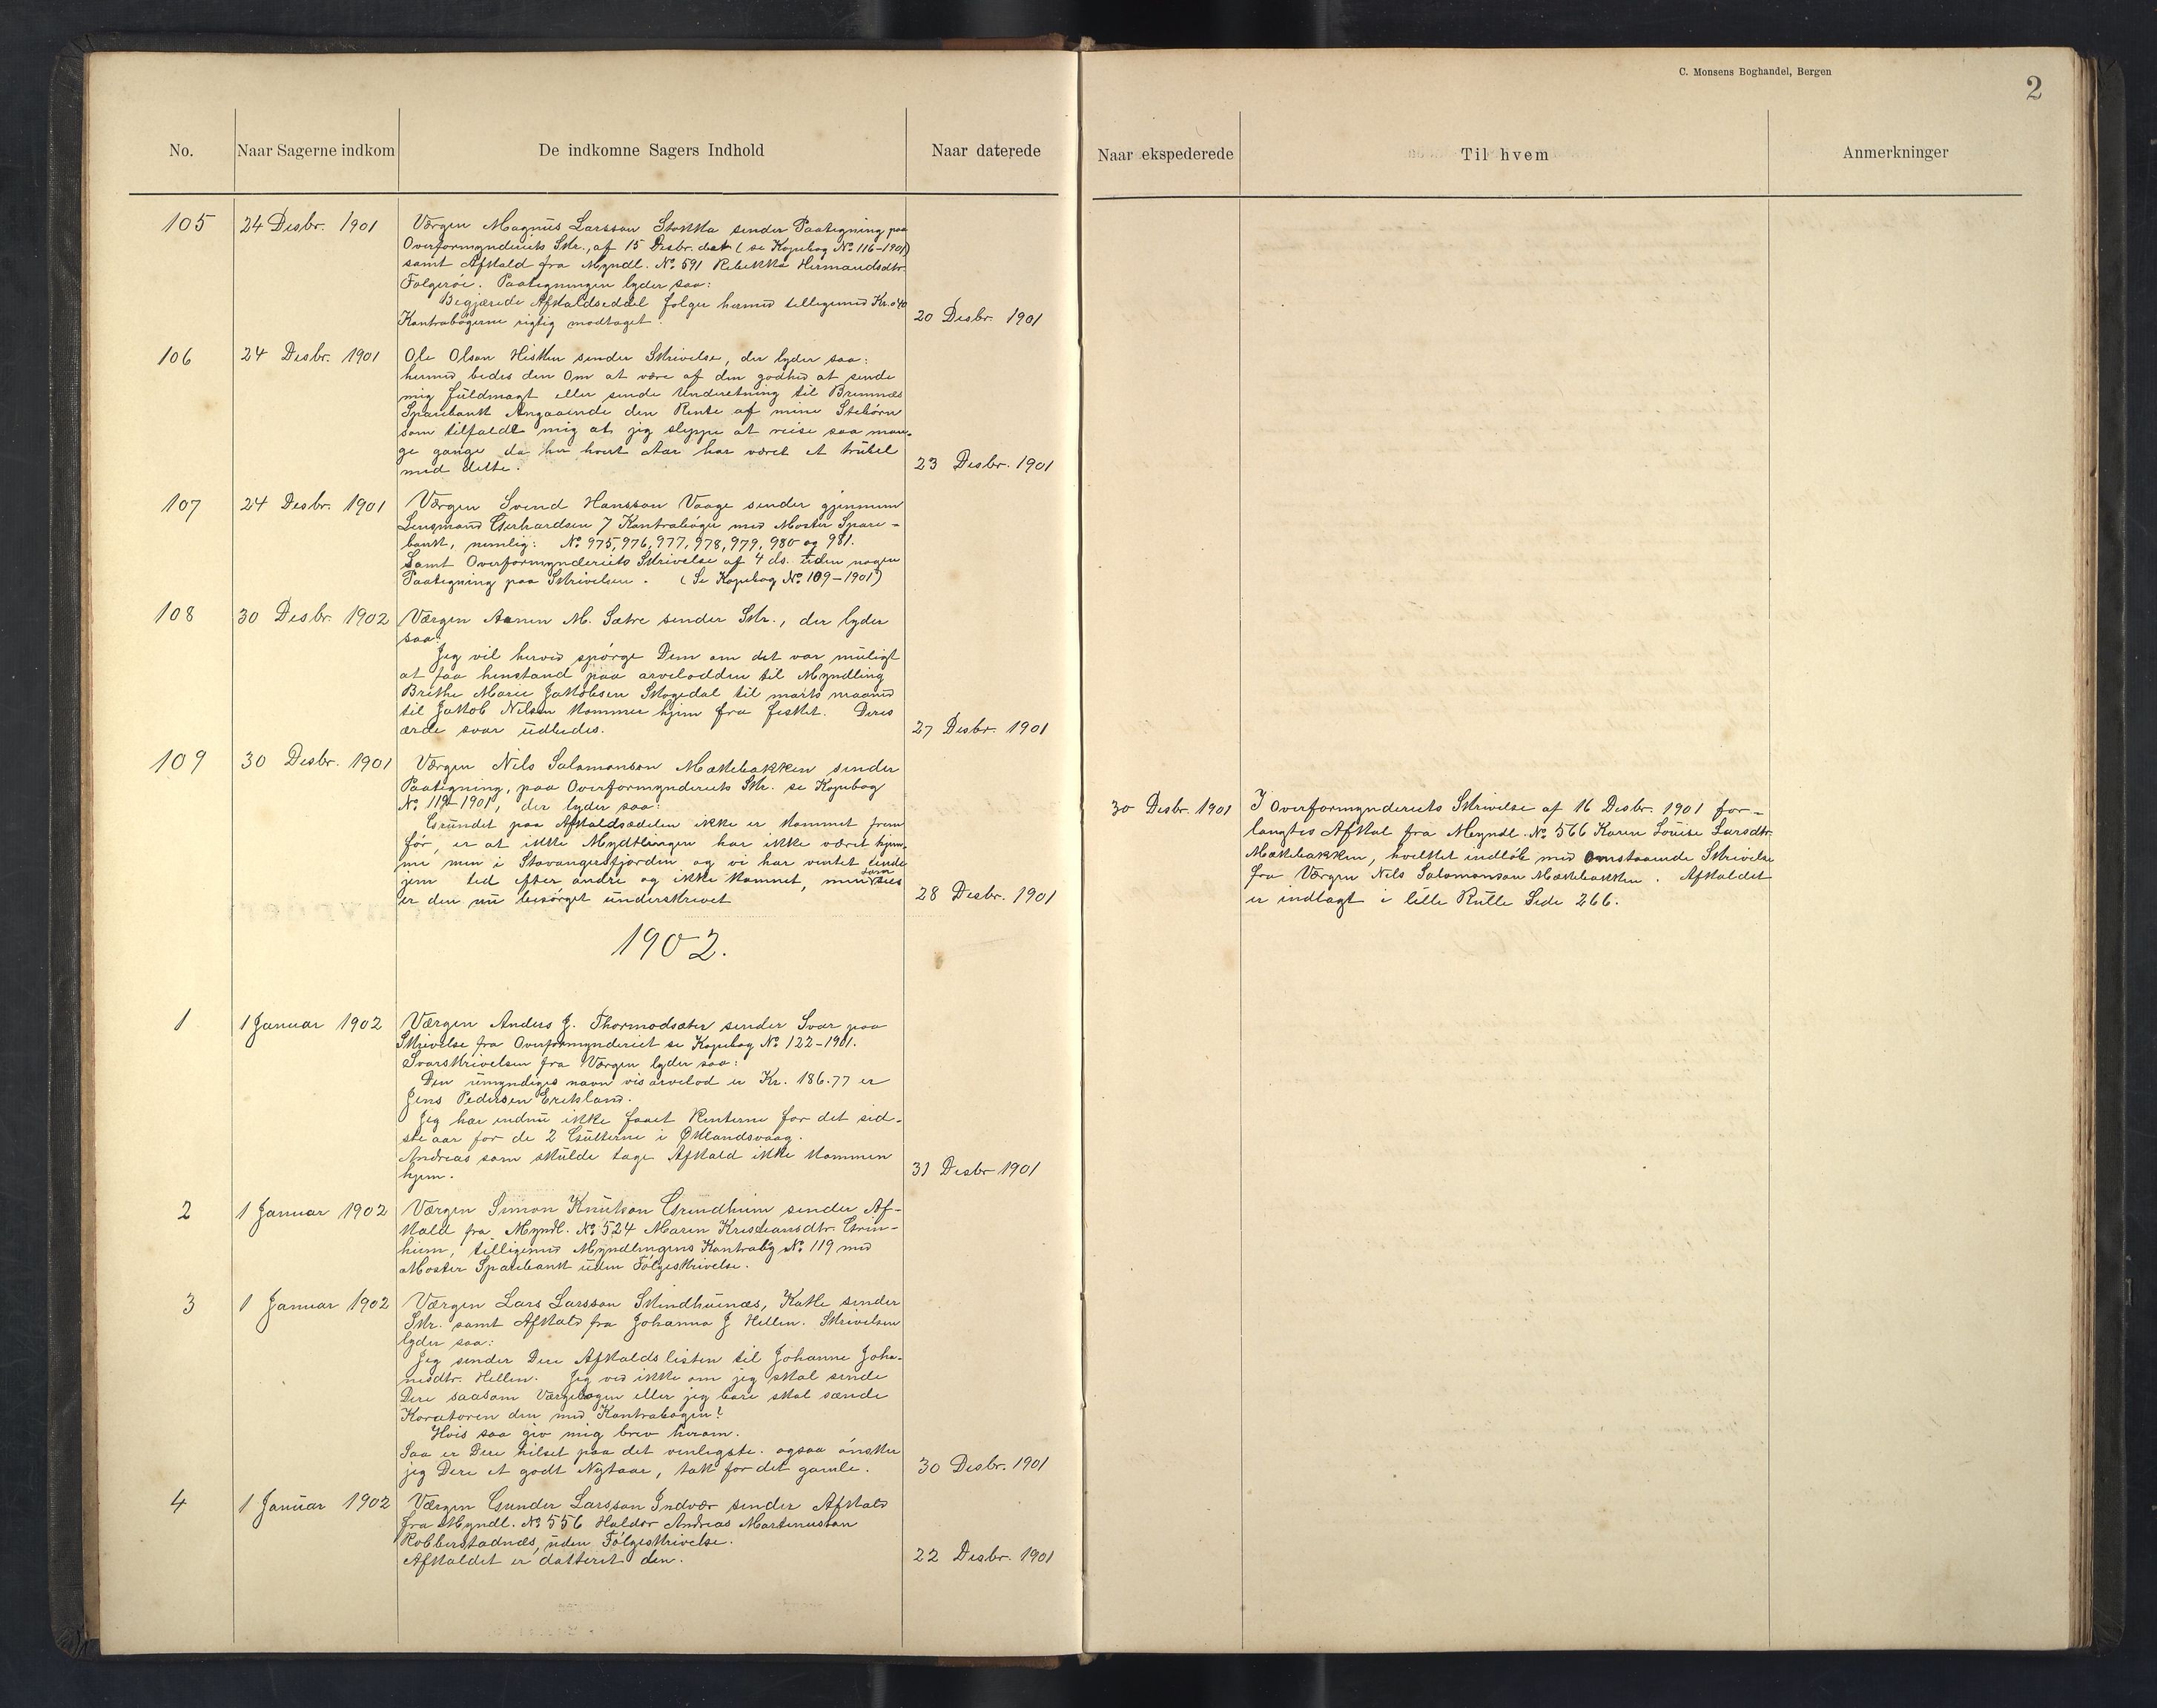 C. Monsens Boghandel, Bergen
2
No. Naar Sagerne indkom De indkomne Sagers Indhold Naar daterede Naar ekspederede Til hvem Anmerkninger
105 24 Desbr. 1901 Værgen Magnus Larsson Stokka sender Paategning paa
Overformynderiets Skr., af 15 Desbr. dat (se Kopibog No. 116-1901)
samt Afkald fra Myndl. No. 591 Rebekka Hermandsdtr.
Folgerøi. Paategningen lyder saa:
Begjærede Afkaldseddel følger hermed tilligemed Kr. 0 40
Kontrabøgerne rigtig modtaget. 20 Desbr. 1901
106 24 Desbr. 1901 Ole Olson Hisken sender Skrivelse, der lyder saa:
hermed bedes den Om at være af den godhed at sende
mig fuldmagt eller sende Underetning til Bremnes
Sparebank Angaaende den Rente af mine Stebørn
som tilfaldt mig at jeg sleppe at reise saa man-
ge gange da her hvert Aar har været et trubel
med dette. 23 Desbr. 1901
107 24 Desbr. 1901 Værgen Svend Hansson Vaage sender gjennem
Lensmand Gerhardsen 7 Kontrabøger med Moster Spare-
bank, nemlig: No. 975, 976, 977, 978, 979, 980 og 981.
Samt Overformynderiets Skrivelse af 4 ds. uden nogen
Paategning paa Skrivelsen. (Se Kopibog No. 109-1901)
108 30 Desbr. 1902 Værgen Aanen M. Sætre sender Skr., der lyder
saa:
Jeg vil herved spørge Dem om det var muligt
at faa henstand paa arvelodden til Myndling
Brithe Marie Jakobsen Skogedal til marts maaned
til Jakob Nelsen kommer hjem fra fisket. Deres
ærde svar udbedes. 27 Desbr. 1901
109 30 Desbr. 1901 Værgen Nils Salamonson Mækebakken sender
Paategning, paa Overformynderiets Skr. se Kopibog
No. 119-1901, der lyder saa:
Grundet paa Afkaldsædelen ikke er kommet frem
før, er at ikke Mydtlingen har ikke været hjem-
me men i Stavangersfjorden og vi har ventet
jem ted efter andre og ikke kommet, men som
er den nu besørget underskrevet 28 Desbr. 1901
30 Desbr. 1901 I Overformynderiets Skrivelse af 16 Desbr. 1901 for-
langtes Afkal fra Myndl. No. 566 Karen Louise Larsdtr.
Mækebakken, hvelket indløb med omstaaende Skrivelse
fra Værgen Nils Salomonson Mækebakken. Afkaldet
er indlagt i lille Rulle Side 266.
1902.
1 1 Januar 1902 Værgen Anders J. Thormodsæter sender Svar paa
Skrivelse fra Overformynderiet se Kopibog No. 122-1901.
Svarskrivelsen fra Værgen lyder saa:
Den umyndiges navn vis arvelod er Kr. 186.77 er
Jens Pedersen Eriksland.
Jeg har endnu ikke faaet Renterne for det sid-
ste aar for de 2 Gutterne i Øklandsvaag.
Andreas som skulde tage Afkald ikke kommen
hjem. 31 Desbr 1901
2 1 Januar 1902 Værgen Simon Knutson Grindheim sender Af-
kald fra Myndl. No. 524 Maren Kristiansdtr. Grin-
heim, tilligemed Myndlingens Kontrabg No. 119 med
Moster Sparebank uden Følgeskrivelse.
3 1 Januar 1902 Værgen Lars Larsson Skindhuenæs, Katle sender
Skr. samt Afkald fra Johanna J Hellen. Skrivelsen
lyder saa:
Jeg sender Dere Afkaldslisten til Johanne Joha-
nesdtr. Hellen. Jeg ved ikke om jeg skal sende
Dere saasom Værgebogen eller jeg bare skal sænde
Koratoren den med Kontrabogen?
Hvis saa giv mig brev herom.
Saa er Dere hilset paa det venligste. ogsaa ønsker
jeg Dere et godt Nytaar, tak for det gamle. 30 Desbr. 1901
4 1 Januar 1902 Værgen Gunder Larsson Indvær sender Afkald
fra Myndl. No. 556 Haldor Andreas Martinusson
Robberstadnæs, uden Følgeskrivelse.
Afkaldet er datteret den. 22 Desbr. 1901